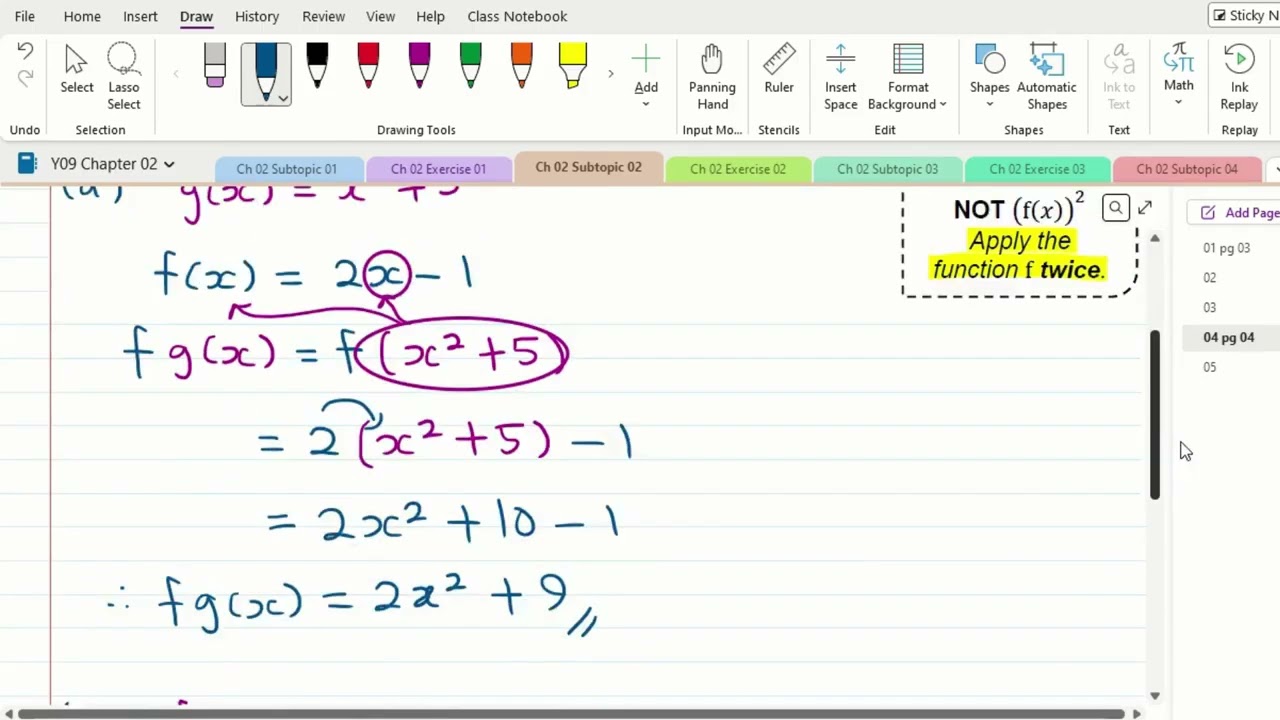 File Home Insert Draw History Review View Help Class Notebook Sticky N
Undo
Select
Lasso Select
Selection
Drawing Tools
Add
Panning Hand
Input Mo...
Ruler
Stencils
Insert Space
Format Background
Edit
Shapes
Automatic Shapes
Shapes
Ink to Text
Text
Math
Ink Replay
Replay
Y09 Chapter 02
Ch 02 Subtopic 01
Ch 02 Exercise 01
Ch 02 Subtopic 02
Ch 02 Exercise 02
Ch 02 Subtopic 03
Ch 02 Exercise 03
Ch 02 Subtopic 04
Add Page
01 pg 03
02
03
04 pg 04
05
NOT (f(x))²
Apply the
function f twice.
(a) g(x) = x² + 5
f(x) = 2x - 1
fg(x) = f(x² + 5)
= 2(x² + 5) - 1
= 2x² + 10 - 1
∴ fg(x) = 2x² + 9